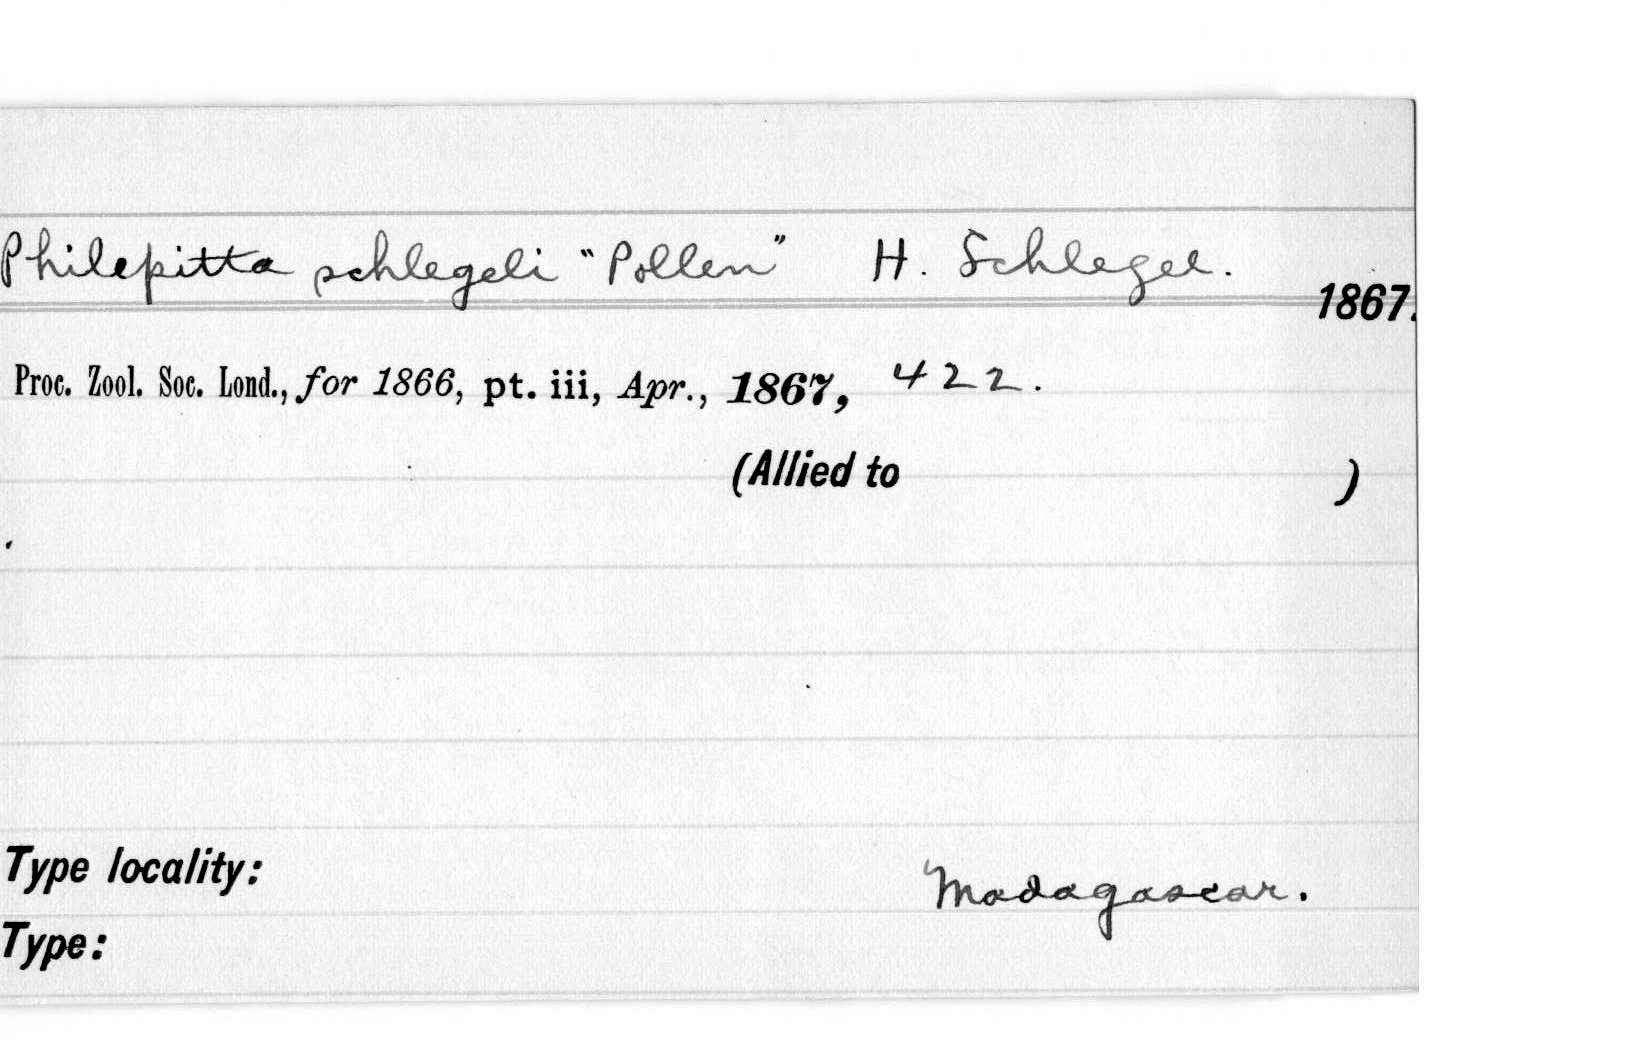 Philepitta schlegeli "Pollen" H. Schlegel.
1867.
Proc. Zool. Soc. Lond., for 1866, pt. iii, Apr., 1867, 422.
(Allied to )
Type locality: Madagascar.
Type: